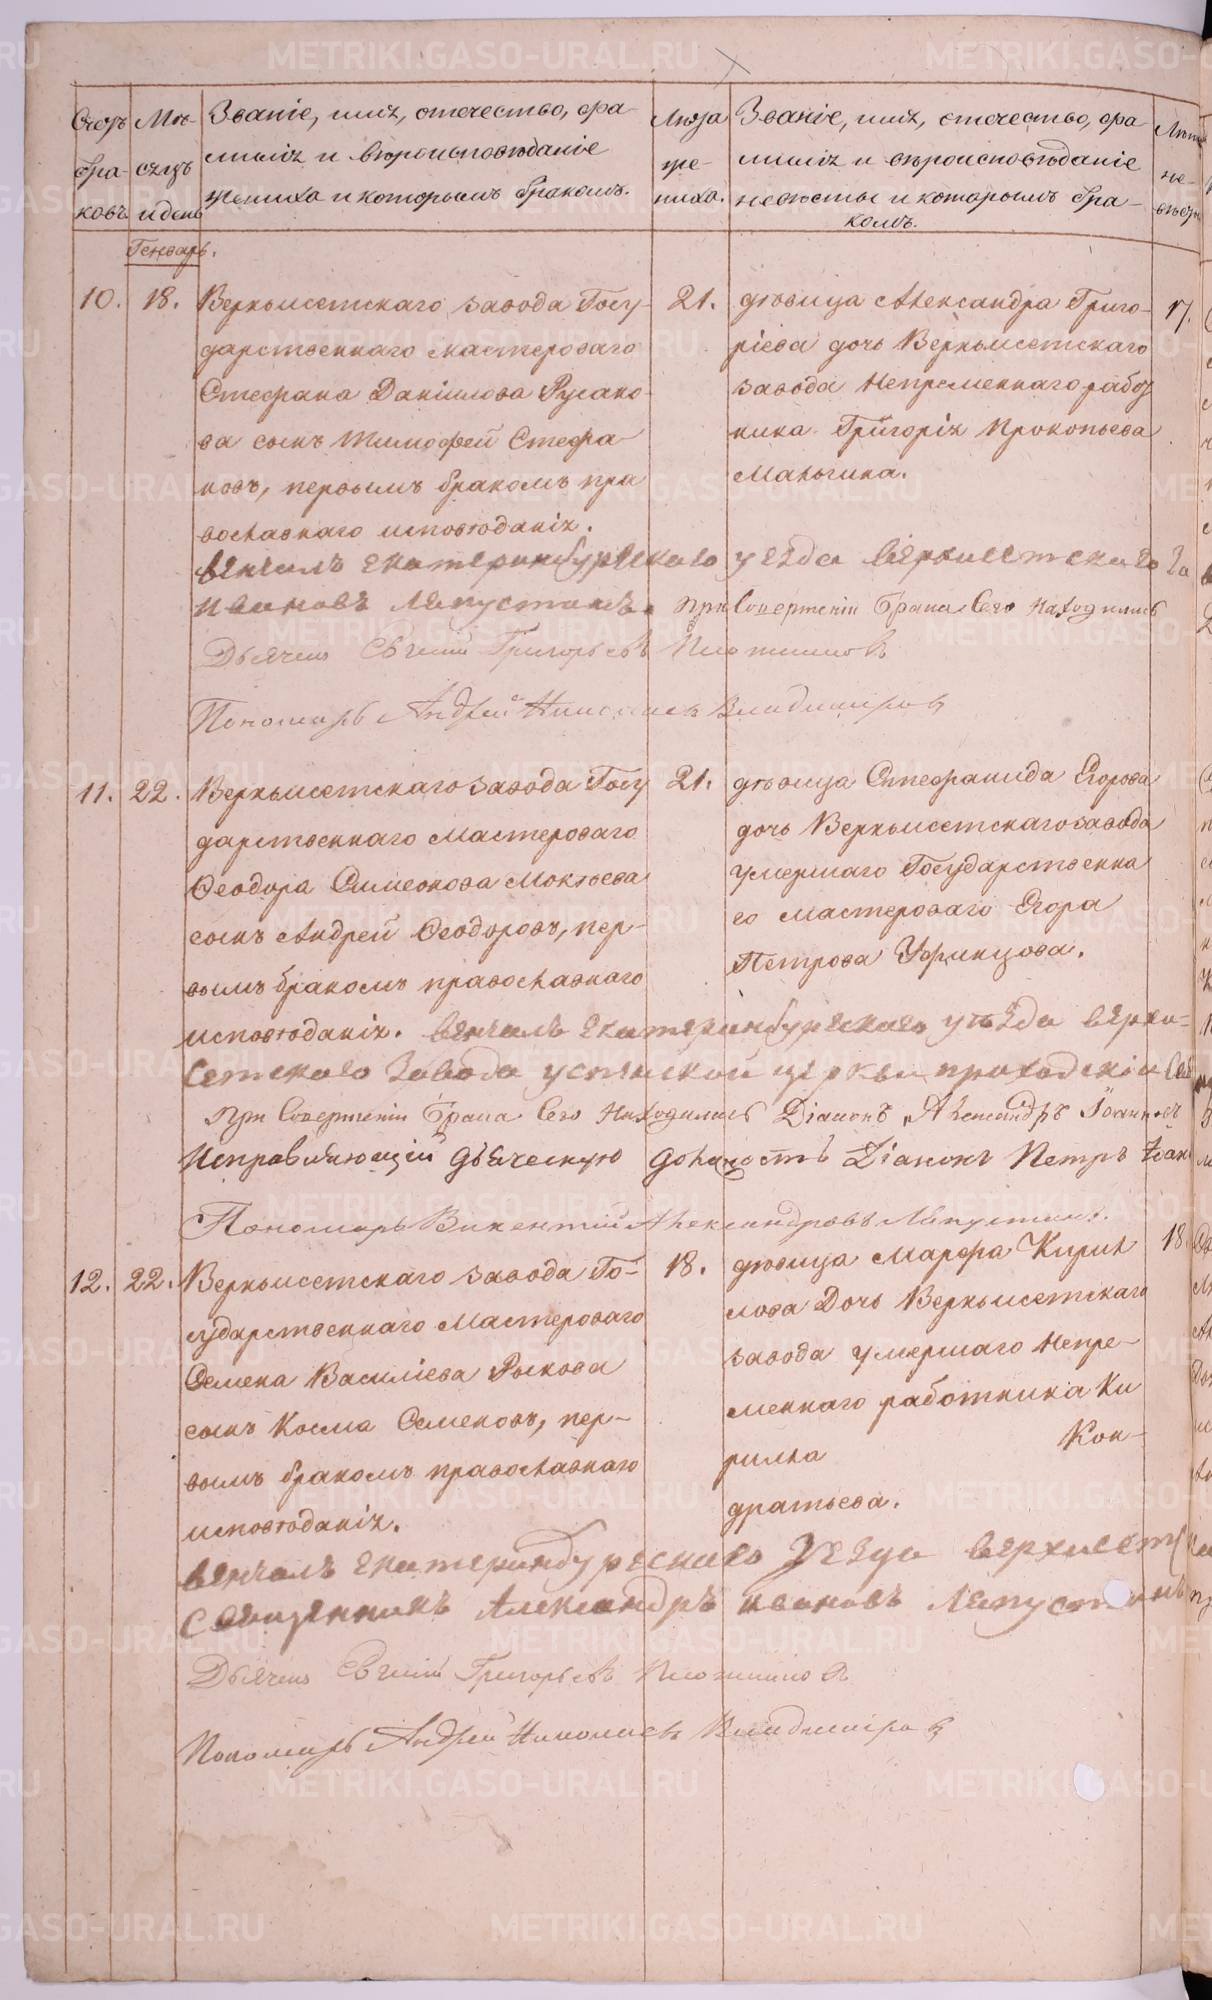 Счетъ браковъ
Мѣсяцъ и день
Званіе, имя, отечество, фа-
милія и вѣроисповѣданіе
жениха и которымъ бракомъ.
Лѣта же-
ниха.
Званіе, имя, отечество, фа-
милія и вѣроисповѣданіе
невѣсты и которымъ бра-
комъ.
Генварь.
10.
18.
Верхъисетскаго завода Госу-
дарственнаго мастероваго
Стефана Даніилова Русако-
ва сынъ Тимофей Стефа
новъ, первымъ бракомъ пра
вославнаго исповѣданія.
21.
дѣвица Александра Григо-
ріева дочь Верхъисетскаго
завода Непременнаго рабо
ника Григорія Прокопьева
Малыгина.
17.
венчалъ екатеринбургскаго уезда верхисетскаго За
Ивановъ Лепустинъ. При Совершеніи Брака Сего находились
Дьячекъ Евгений Григорьевъ Плотниковъ
Пономарь Андрей Николаевъ Владимировъ
11.
22.
Верхъисетскаго завода Госу
дарственнаго Мастероваго
Ѳеодора Симеонова Моктѣева
сынъ Андрей Ѳеодоровъ, пер-
вымъ бракомъ православнаго
исповѣданія.
21.
дѣвица Стефанида Егорова
дочь Верхъисетскаго завода
умершаго Государственна
го мастероваго Егора
Петрова Уфинцова.
венчалъ екатеринбургскаго уѣзда верхи-
сетскаго Завода успенской церкви приходскій
При Совершеніи Брака Сего находились Діаконъ Александръ Іоанновъ
Исправляющій дьяческую должность Діаконъ Петръ Іоан
Пономарь Викентий Александровъ Лепустинъ.
12.
22.
Верхъисетскаго завода Го-
сударственнаго Мастероваго
Семена Василіева Рыкова
сынъ Косма Семеновъ, пер-
вымъ бракомъ православнаго
исповѣданія.
18.
дѣвица Марфа Кирил
лова Дочь Верхъисетскаго
завода умершаго Непре-
меннаго работника Ки
рилла Кон-
дратьева.
18
венчалъ екатеринбургскаго уезда верхисетс
Священникъ Александръ Ивановъ Лепустинъ
Дьячекъ Евгений Григорьевъ Плотниковъ
Пономарь Андрей Николаевъ Владимировъ
METRIKI.GASO-URAL.RU